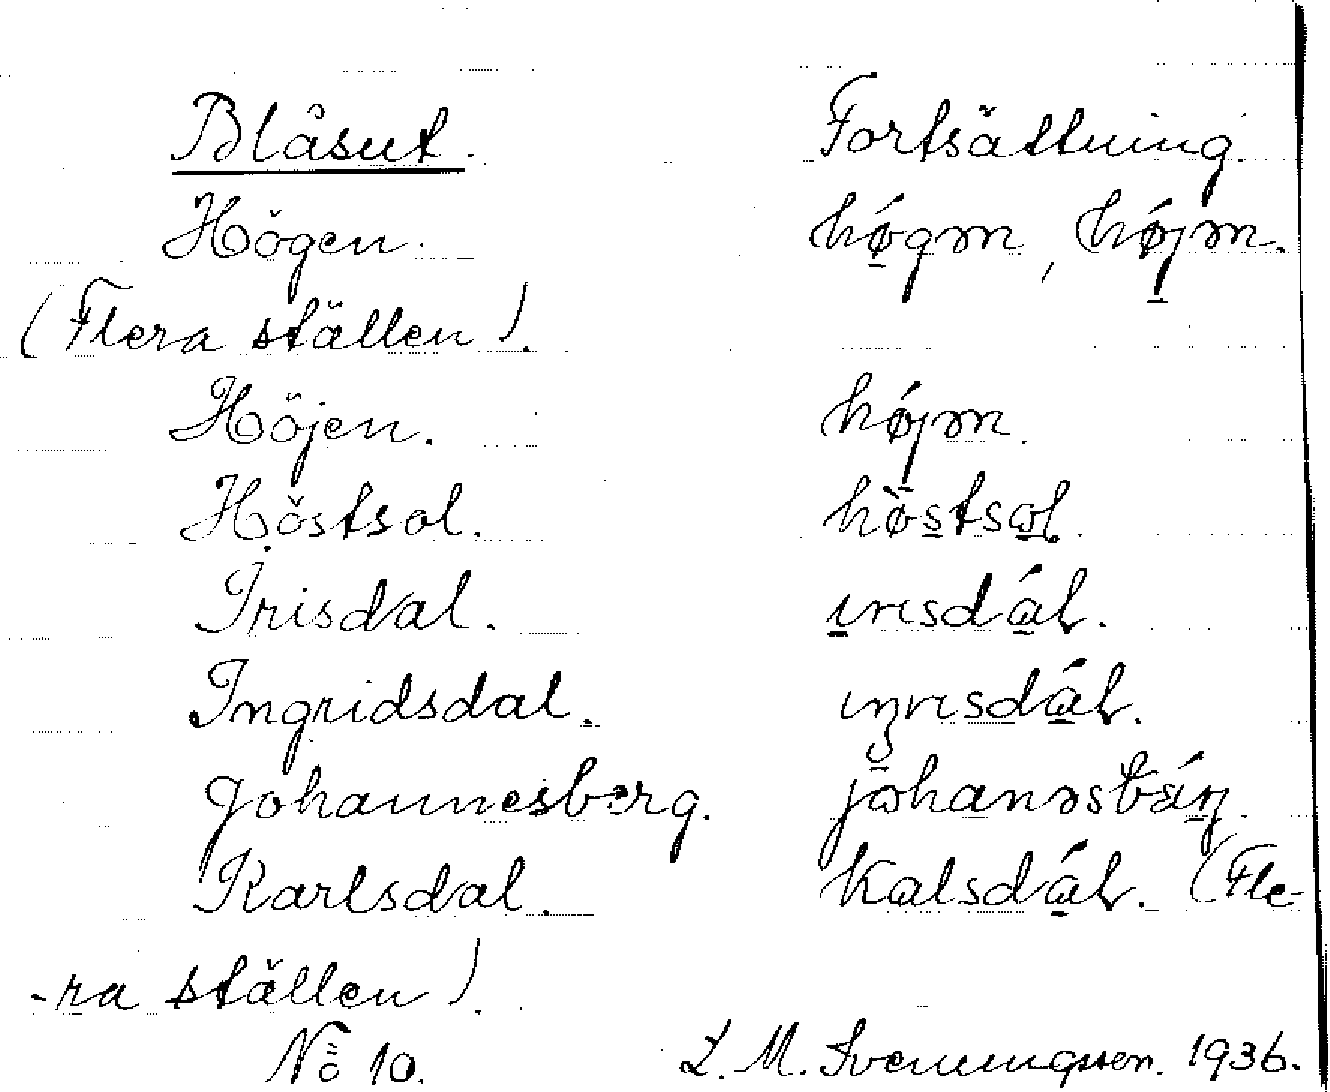 Blåsut. Fortsättning.
Högen. hǿ̱gən, hǿ̱jən.
(Flera ställen).
Höjen. hǿ̱jən.
Höstsol. hø̀s̱tsω̱ɫ.
Irisdal. ı̱rısdá̱ɫ.
Ingridsdal. ıŋrısdá̱ɫ.
Johannesberg. johanəsbárj.
Karlsdal. kalsdá̱ɫ. (Fle-
-ra ställen).
No 10. L. M. Svenungsson. 1936.